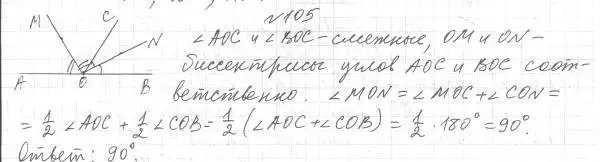 №105
M C N
A O B
∠AOC и ∠BOC - смежные, OM и ON -
биссектрисы углов AOC и BOC соот-
ветственно. ∠MON = ∠MOC + ∠CON =
= 1/2 ∠AOC + 1/2 ∠COB = 1/2 (∠AOC + ∠COB) = 1/2 · 180° = 90°.
Ответ: 90°.